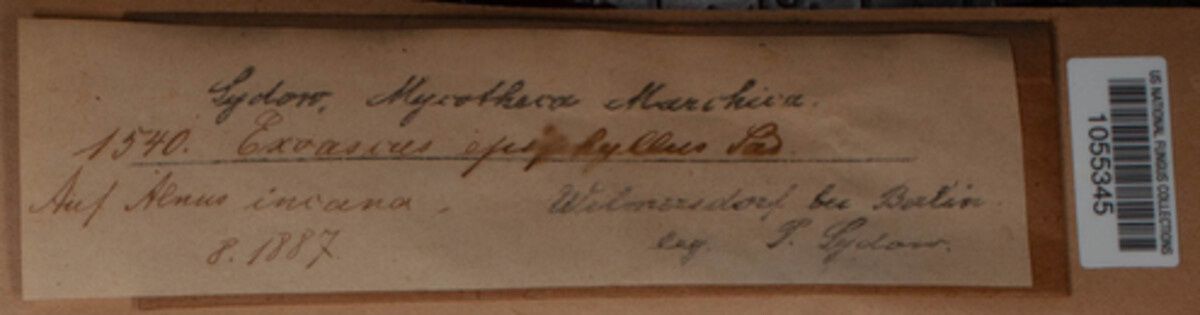 Sydow, Mycotheca Marchica.
1540. Exoascus epiphyllus Sad.
Auf Alnus incana.
8. 1887
Wilmersdorf bei Berlin.
leg. P. Sydow.
US NATIONAL FUNGUS COLLECTIONS
1055345